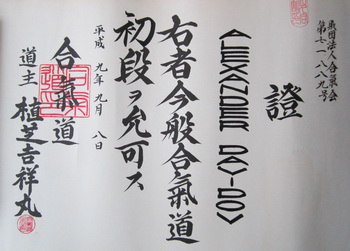 財団法人合氣会
第七一八八九号
證
ALEXANDER DAVIDOV
右者今般合氣道
初段ヲ允可ス
平成 九年 九月 八日
合氣道
道主 植芝吉祥丸